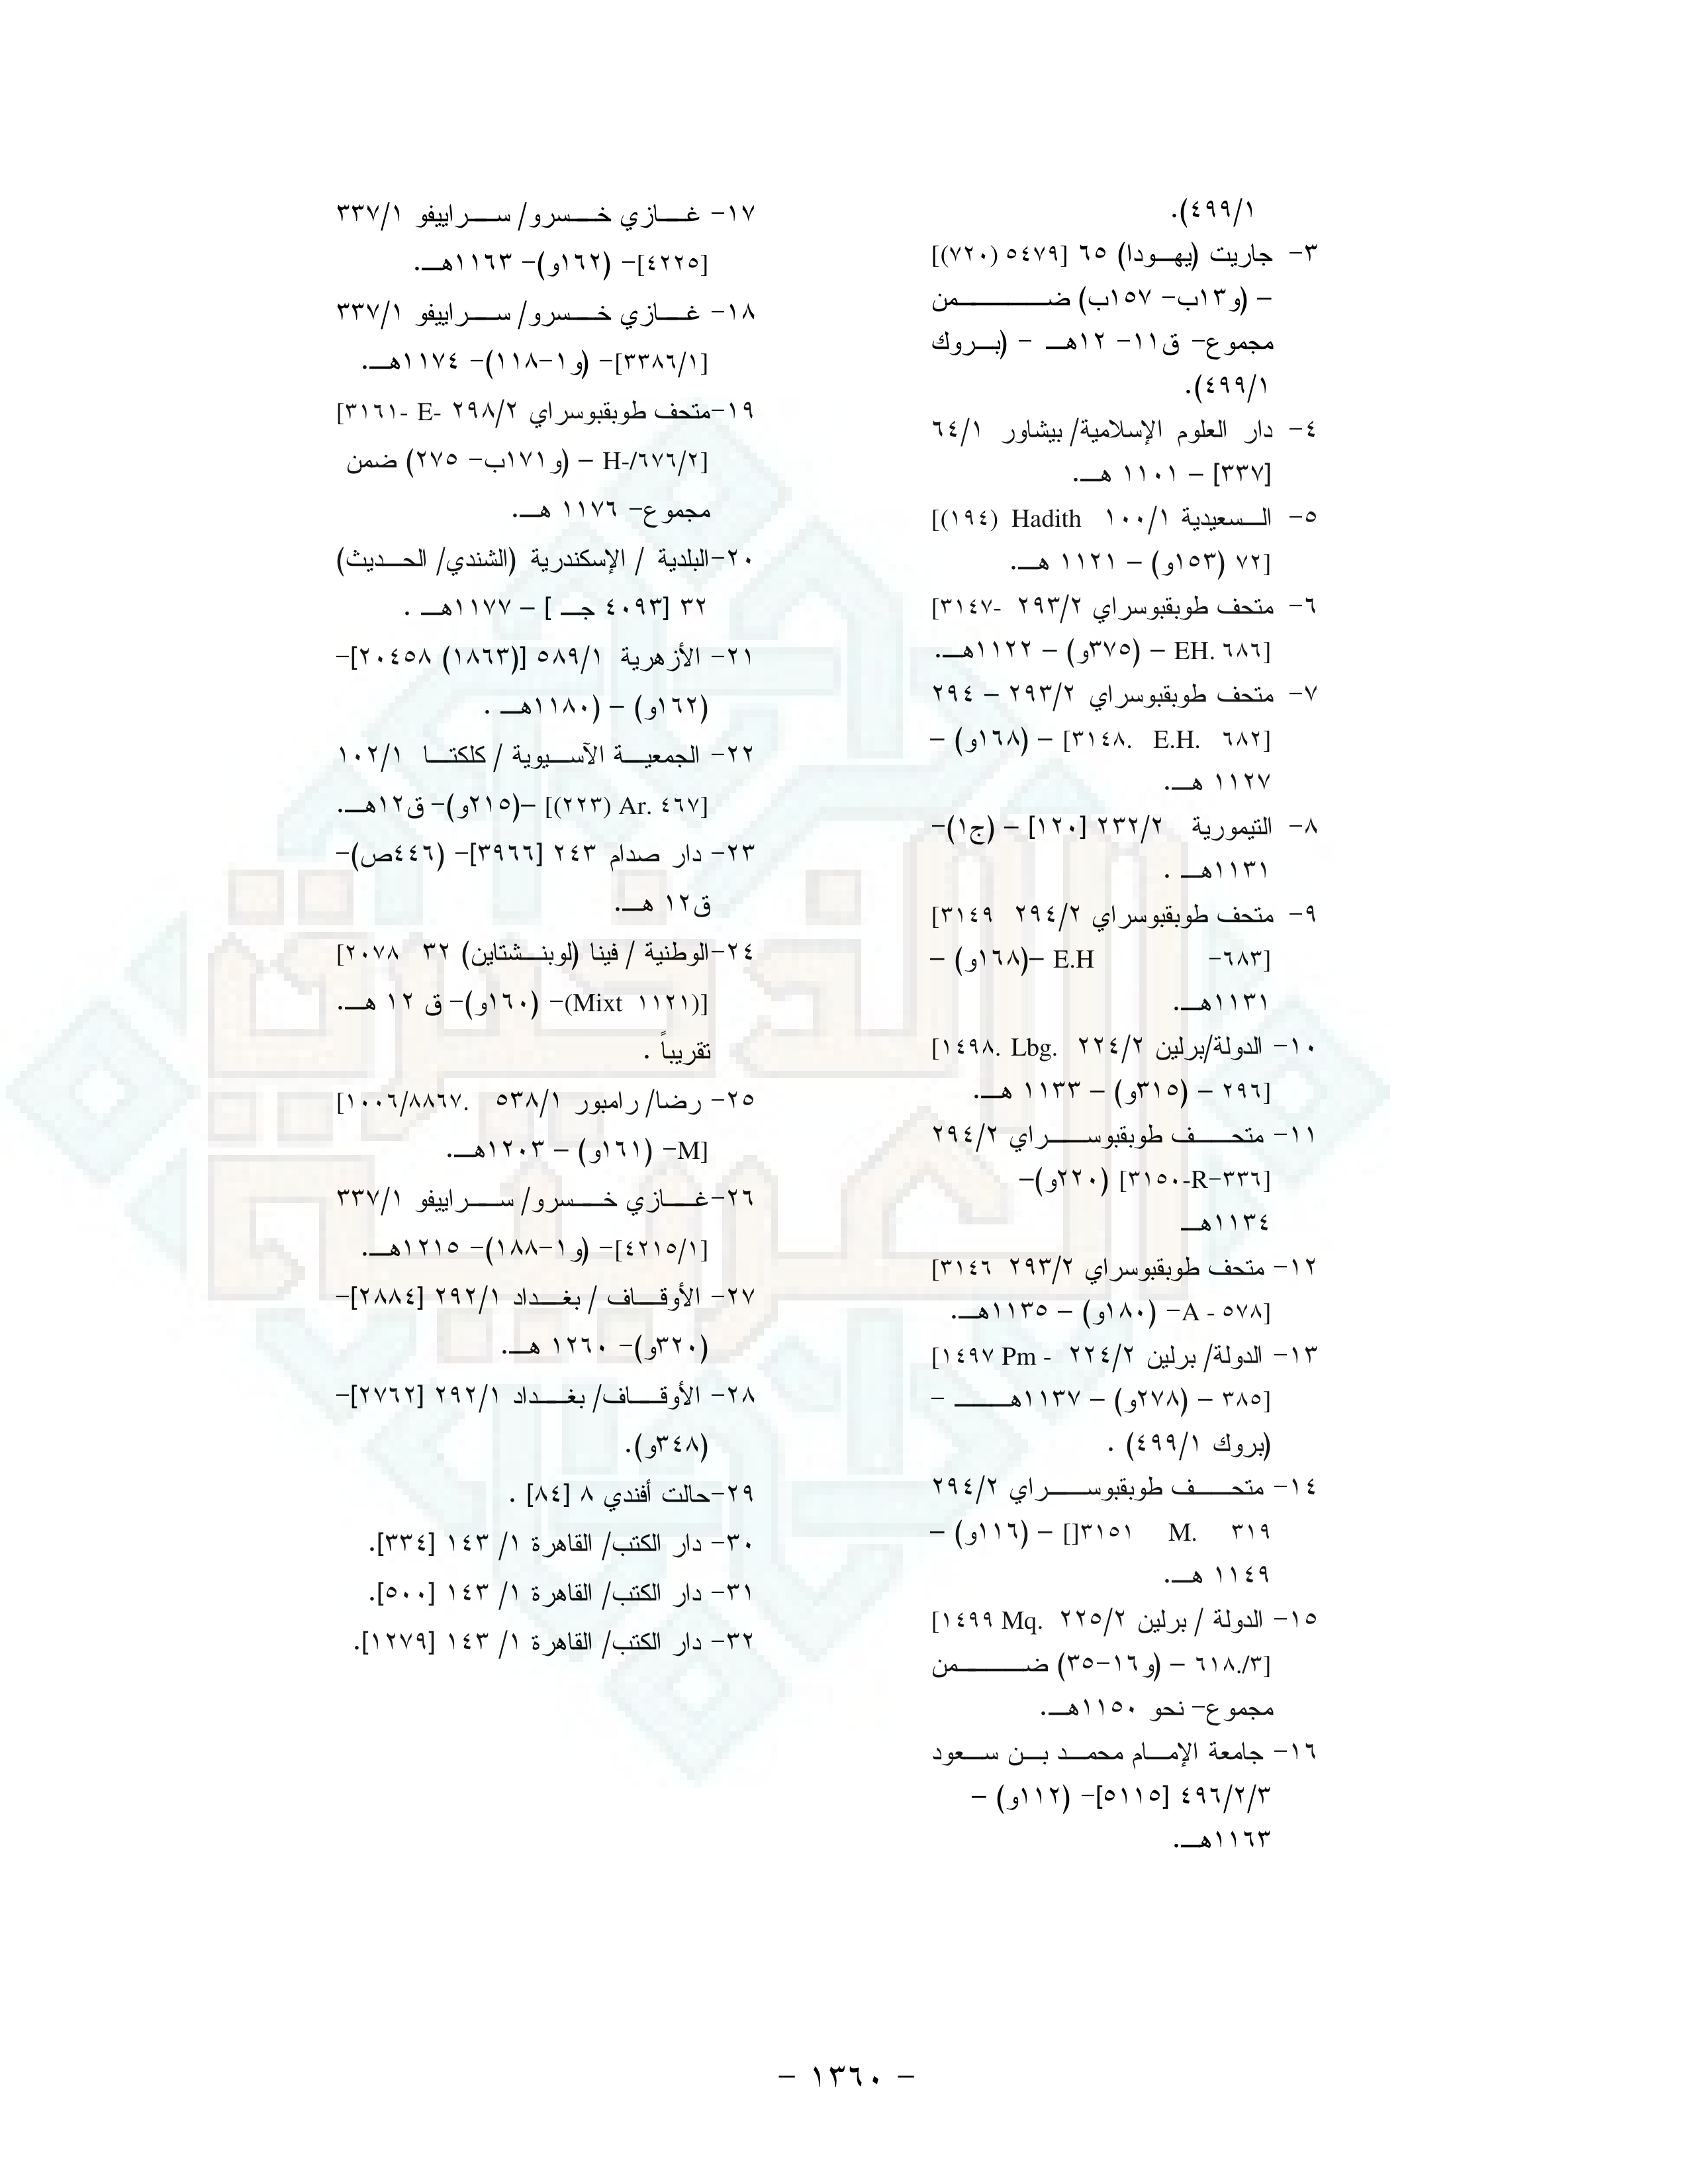 ٤٩٩/١).
٣- جاريت (يهودا) ٦٥ [٥٤٧٩ (٧٢٠)]
– (و١٣ب- ١٥٧ب) ضمن
مجموع- ق١١- ١٢هـ - (بروك
٤٩٩/١).
٤- دار العلوم الإسلامية/ بيشاور ٦٤/١
[٣٣٧] – ١١٠١ هـ.
٥- السعيدية ١٠٠/١ Hadith (١٩٤)]
[٧٢ (١٥٣و) – ١١٢١ هـ.
٦- متحف طوبقبوسراي ٢٩٣/٢ -٣١٤٧]
[٦٨٦ EH. – (٣٧٥و) – ١١٢٢هـ.
٧- متحف طوبقبوسراي ٢٩٣/٢ – ٢٩٤
[٦٨٢ E.H. .٣١٤٨] – (١٦٨و) –
١١٢٧ هـ.
٨- التيمورية ٢٣٢/٢ [١٢٠] – (ج١)-
١١٣١هـ .
٩- متحف طوبقبوسراي ٢٩٤/٢ ٣١٤٩]
[٦٨٣- E.H –(١٦٨و) –
١١٣١هـ.
١٠- الدولة/برلين ٢٢٤/٢ Lbg. .١٤٩٨]
[٢٩٦ – (٣١٥و) – ١١٣٣ هـ.
١١- متحف طوبقبوسراي ٢٩٤/٢
[٣٣٦-R-٣١٥٠] (٢٢٠و)-
١١٣٤هـ
١٢- متحف طوبقبوسراي ٢٩٣/٢ ٣١٤٦]
[٥٧٨ - A- (١٨٠و) – ١١٣٥هـ.
١٣- الدولة/ برلين ٢٢٤/٢ - Pm ١٤٩٧]
[٣٨٥ – (٢٧٨و) – ١١٣٧هـ -
(بروك ٤٩٩/١) .
١٤- متحف طوبقبوسراي ٢٩٤/٢
٣١٩ M. ٣١٥١[] – (١١٦و) –
١١٤٩ هـ.
١٥- الدولة / برلين ٢٢٥/٢ Mq. ١٤٩٩]
[٣/.٦١٨ – (و١٦-٣٥) ضمن
مجموع- نحو ١١٥٠هـ.
١٦- جامعة الإمام محمد بن سعود
٤٩٦/٢/٣ [٥١١٥]- (١١٢و) –
١١٦٣هـ.
١٧- غازي خسرو/ سراييفو ٣٣٧/١
[٤٢٢٥]- (١٦٢و)- ١١٦٣هـ.
١٨- غازي خسرو/ سراييفو ٣٣٧/١
[٣٣٨٦/١]- (و١-١١٨)- ١١٧٤هـ.
١٩-متحف طوبقبوسراي ٢٩٨/٢ -E -٣١٦١]
[٦٧٦/٢/-H – (و١٧١ب- ٢٧٥) ضمن
مجموع- ١١٧٦ هـ.
٢٠-البلدية / الإسكندرية (الشندي/ الحديث)
٣٢ [٤٠٩٣ جـ ] – ١١٧٧هـ .
٢١- الأزهرية ٥٨٩/١ [(١٨٦٣) ٢٠٤٥٨]-
(١٦٢و) – (١١٨٠هـ .
٢٢- الجمعية الآسيوية / كلكتا ١٠٢/١
[٤٦٧ Ar. (٢٢٣)] –(٢١٥و)- ق١٢هـ.
٢٣- دار صدام ٢٤٣ [٣٩٦٦]- (٤٤٦ص)-
ق١٢ هـ.
٢٤-الوطنية / فينا (لوبنشتاين) ٣٢ ٢٠٧٨]
[(١١٢١ Mixt)- (١٦٠و)- ق ١٢ هـ.
تقريباً .
٢٥- رضا/ رامبور ٥٣٨/١ .١٠٠٦/٨٨٦٧]
[M- (١٦١و) – ١٢٠٣هـ.
٢٦-غازي خسرو/ سراييفو ٣٣٧/١
[٤٢١٥/١]- (و١-١٨٨)- ١٢١٥هـ.
٢٧- الأوقاف / بغداد ٢٩٢/١ [٢٨٨٤]-
(٣٢٠و)- ١٢٦٠ هـ.
٢٨- الأوقاف/ بغداد ٢٩٢/١ [٢٧٦٢]-
(٣٤٨و).
٢٩-حالت أفندي ٨ [٨٤] .
٣٠- دار الكتب/ القاهرة ١/ ١٤٣ [٣٣٤].
٣١- دار الكتب/ القاهرة ١/ ١٤٣ [٥٠٠].
٣٢- دار الكتب/ القاهرة ١/ ١٤٣ [١٢٧٩].
- ١٣٦٠ -